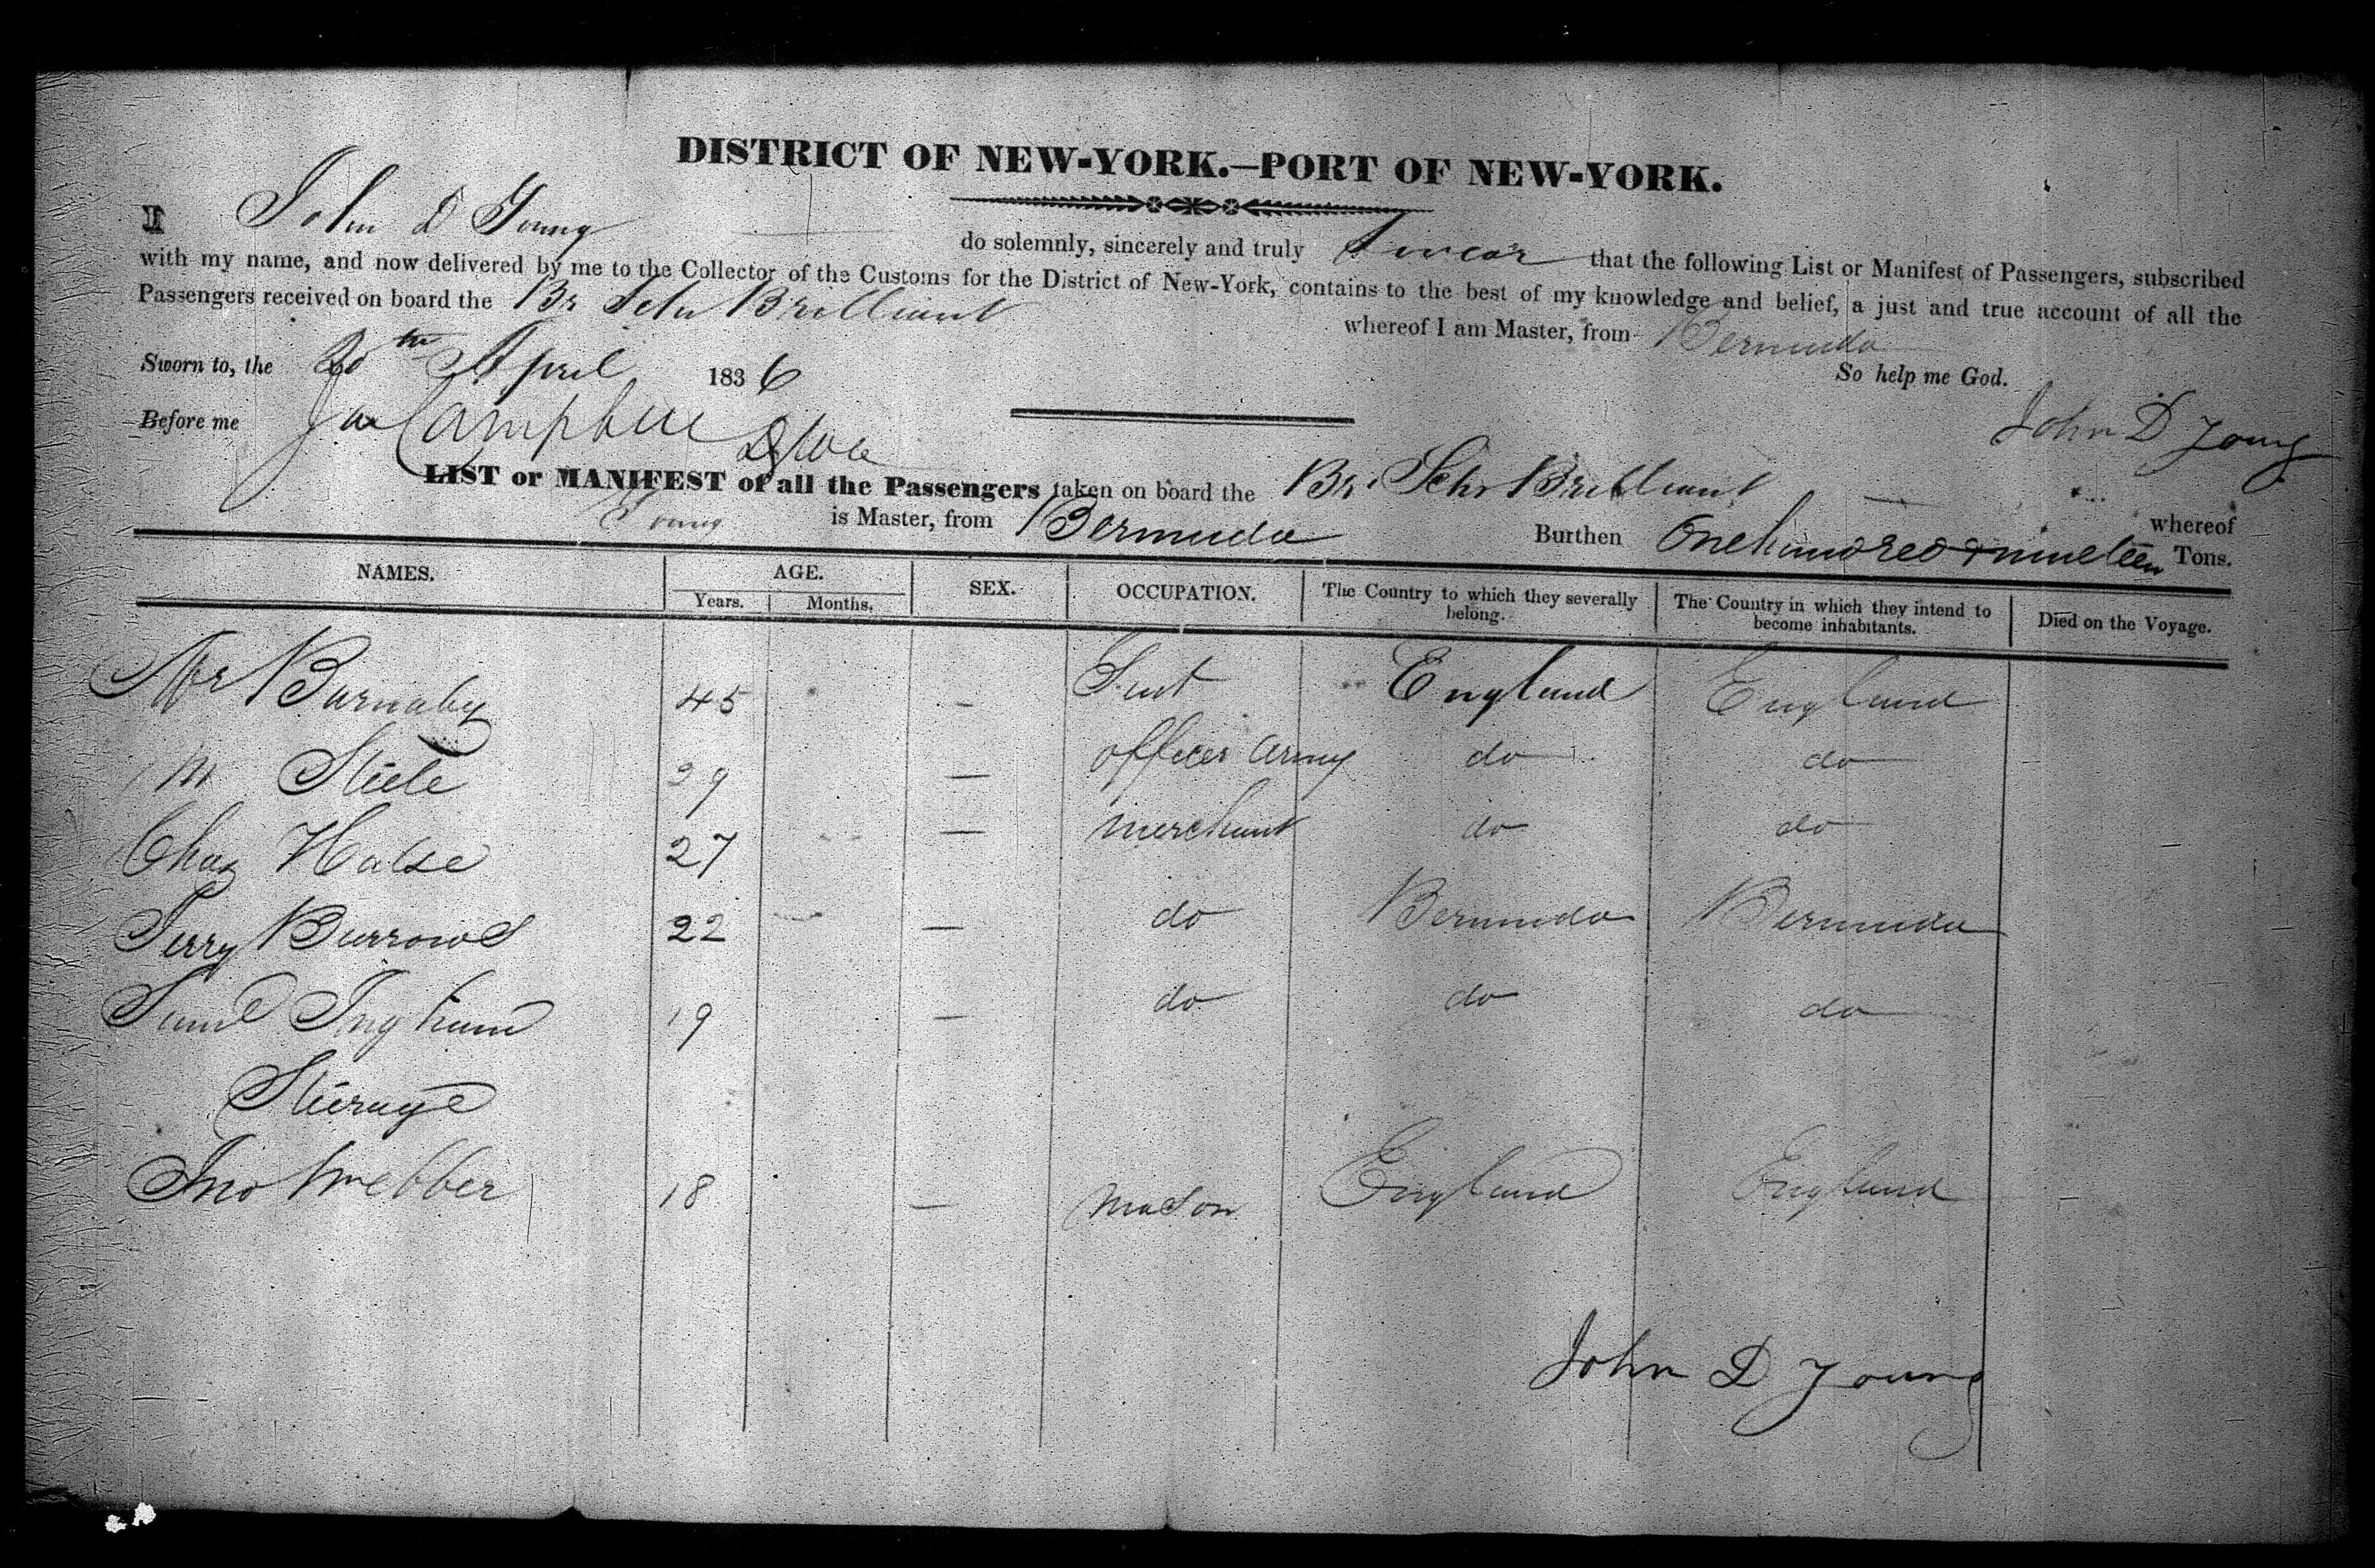 DISTRICT OF NEW-YORK.—PORT OF NEW-YORK.
I John D Young do solemnly, sincerely and truly Swear that the following List or Manifest of Passengers, subscribed
with my name, and now delivered by me to the Collector of the Customs for the District of New-York, contains to the best of my knowledge and belief, a just and true account of all the
Passengers received on board the Br Schr Brilliant whereof I am Master, from Bermuda
Sworn to, the 20th April 1836 So help me God.
Before me Campbell John D Young
LIST or MANIFEST of all the Passengers taken on board the Br. Schr Brilliant whereof
Young is Master, from Bermuda Burthen One hundred & nineteen Tons.
NAMES. AGE. SEX. OCCUPATION. The Country to which they severally belong. The Country in which they intend to become inhabitants. Died on the Voyage.
Years. Months.
Mr Burnaby 45 — England England
Mr Steele 29 — officer army do do
Chas Halse 27 — merchant do do
Terry Burrows 22 — do Bermuda Bermuda
Saml Ingham 19 — do do do
Steerage
Jno Webber 18 — Mason England England
John D Young